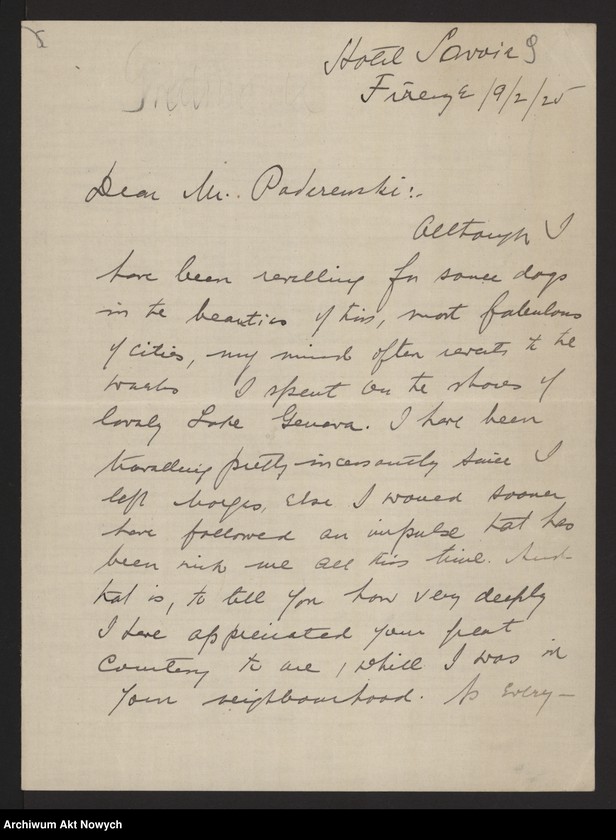 Hotel Savoia
Firenze 19/2/25
Dear Mr. Paderewski:.
Although I
have been revelling for some days
in the beauties of this, most fabulous
of cities, my mind often reverts to the
weeks I spent on the shores of
lovely Lake Geneva. I have been
travelling pretty incessantly since I
left Morges, else I would sooner
have followed an impulse that has
been with me all this time. And
that is, to tell you how very deeply
I have appreciated your great
Courtesy to me, while I was in
your neighbourhood. As every-
Archiwum Akt Nowych